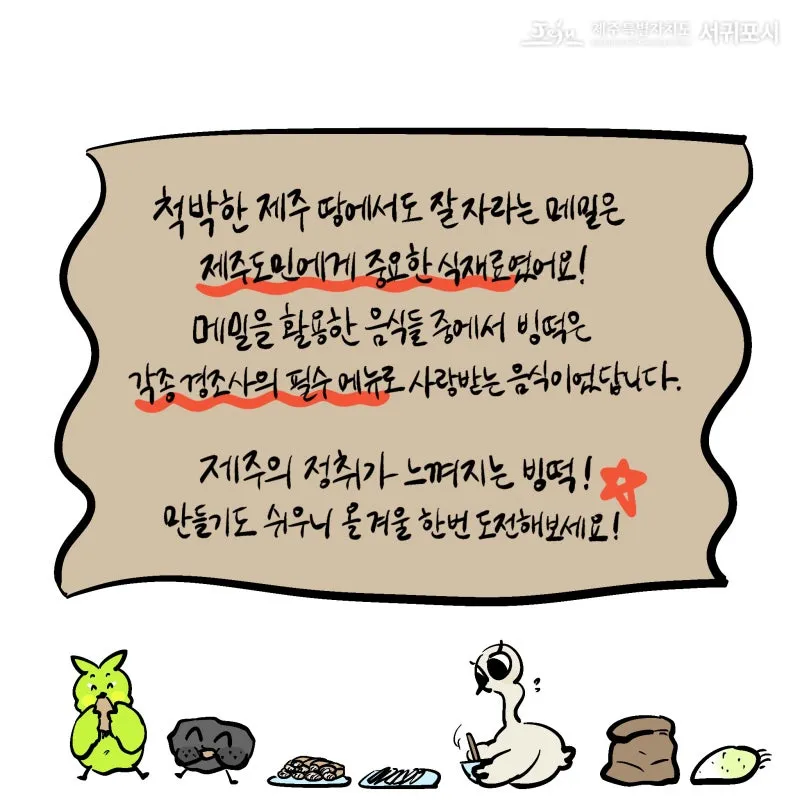 Jeju 제주특별자치도 서귀포시
척박한 제주 땅에서도 잘 자라는 메밀은
제주도민에게 중요한 식재료였어요!
메밀을 활용한 음식들 중에서 빙떡은
각종 경조사의 필수 메뉴로 사랑받는 음식이었답니다.
제주의 정취가 느껴지는 빙떡!
만들기도 쉬우니 올 겨울 한번 도전해보세요!